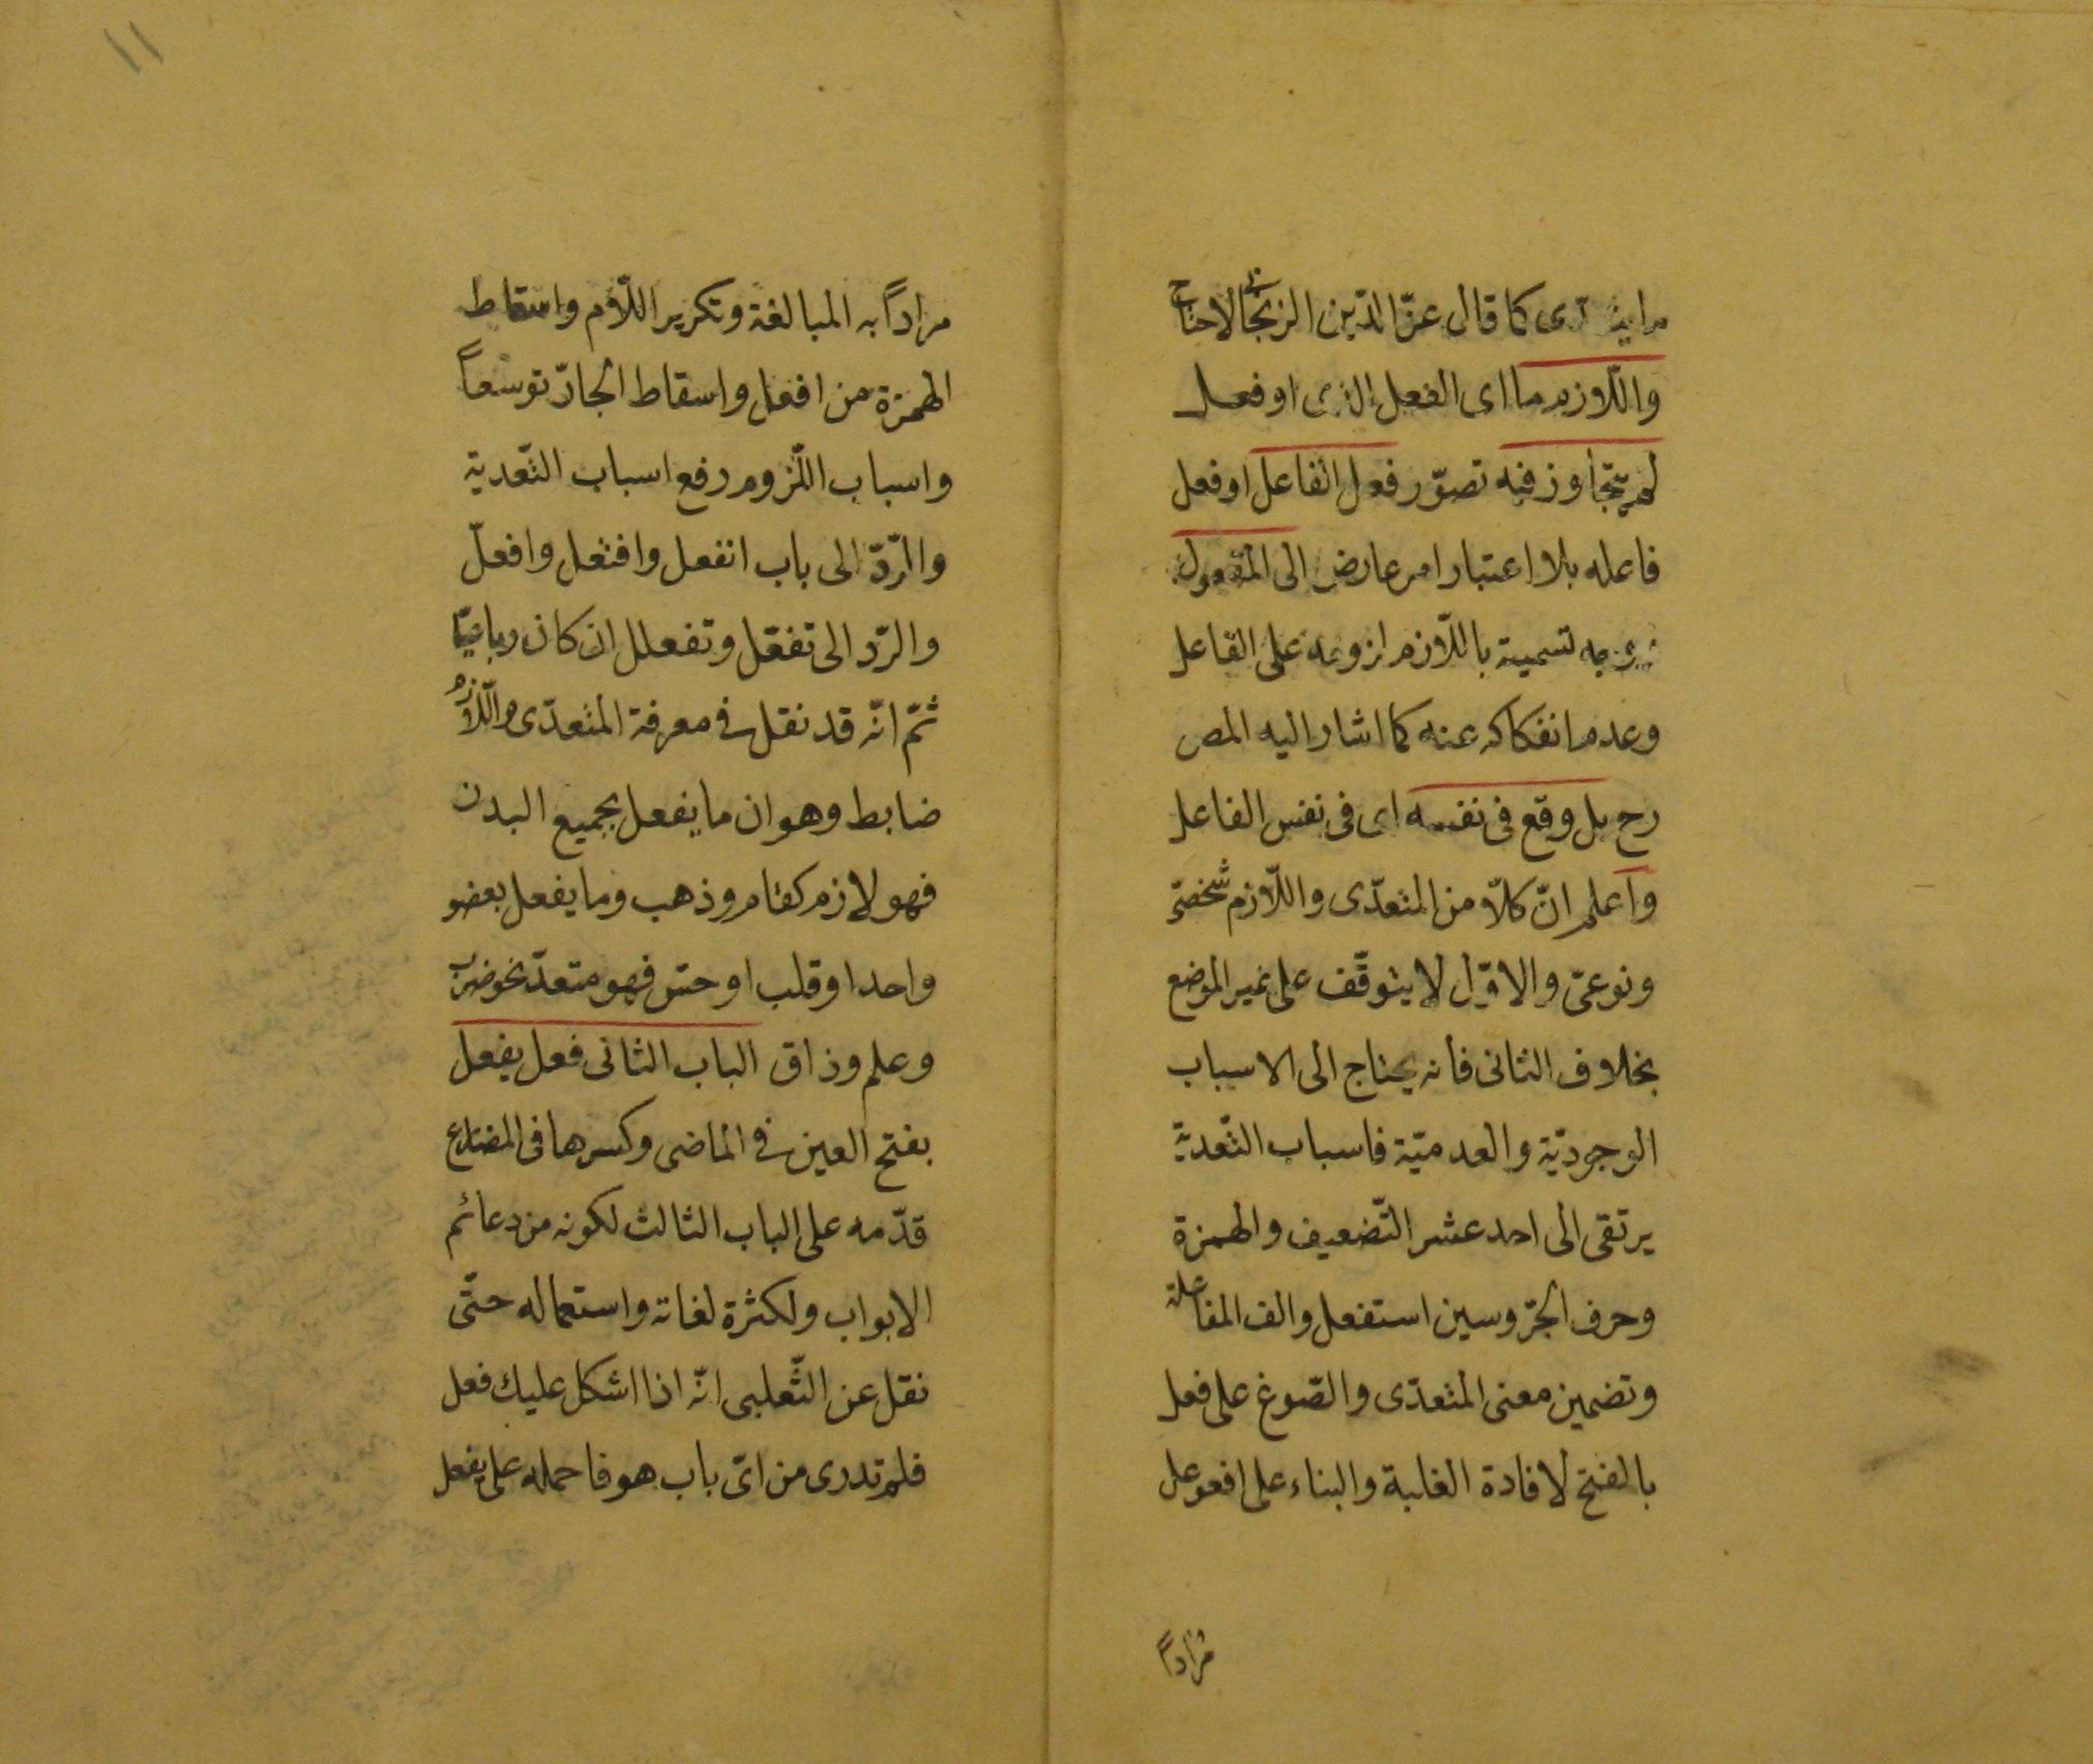 كما قال عزّ الدّين الزنجانى لاحتاج
واللّازم ما اى الفعل الذى او فعل
لم يتجاوز فيه تصوّر فعل الفاعل او فعل
فاعله بلا اعتبار امر عارض الى المفعول
وجه تسميته باللّازم لزومه على الفاعل
وعدم انفكاكه عنه كما اشار اليه المص
رح بل وقع فى نفسه اى فى نفس الفاعل
واعلم انّ كلّا من المتعدّى واللّازم شخصىّ
ونوعىّ والاوّل لا يتوقّف على غير الموضع
بخلاف الثانى فأنه يحتاج الى الاسباب
الوجوديّة والعدميّة فاسباب التّعديّة
يرتقى الى احد عشر التّضعيف والهمزة
وحرف الجّر وسين استفعل والف المفاعلة
وتضمين معنى المتعدّى والصّوغ على فعل
بالفتح لافادة الغلبة والبناء على افعوعل
مراداً
١١
مراداً به المبالغة وتكرير اللّام واسقاط
الهمزة من افعل واسقاط الجارّ توسعاً
واسباب اللّزوم رفع اسباب التّعدية
والرّدّ الى باب انفعل وافتعل وافعلّ
والرّد الى تفعّل وتفعلل ان كان رباعيّا
ثمّ انّه قد نقل فى معرفة المتعدّى واللّازم
ضابط وهو ان ما يفعل بجميع البدن
فهو لازم كقام وذهب وما يفعل بعضو
واحد او قلب او حسّ فهو متعدّ نحو ضرب
وعلم وذاق الباب الثانى فعل يفعل
بفتح العين فى الماضى وكسرها فى المضارع
قدّمه على الباب الثالث لكونه من دعائم
الابواب ولكثرة لغاته واستعماله حتّى
نقل عن الثّعلبى انّه اذا اشكل عليك فعل
فلم تدرى من اىّ باب هو فاحمله على يفعل